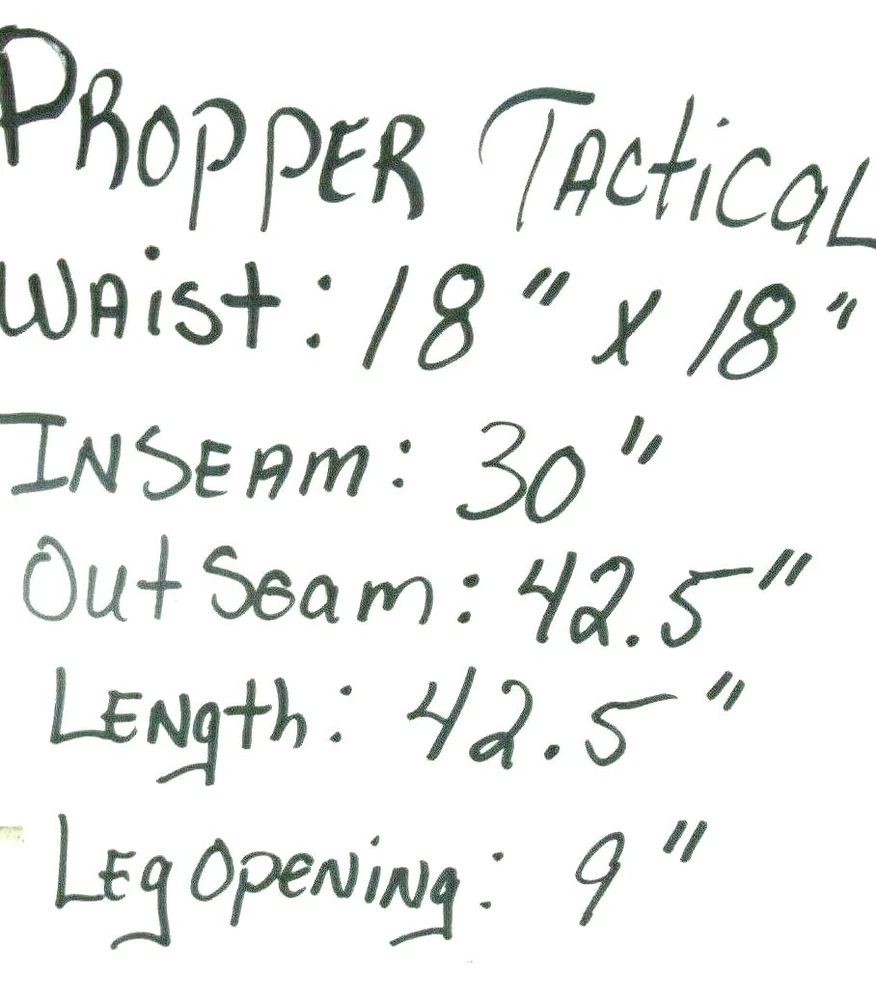 PROPPER TACTICAL
WAist: 18" x 18"
INSEAM: 30"
Out Seam: 42.5"
LENgth: 42.5"
LEg OpENiNg: 9"